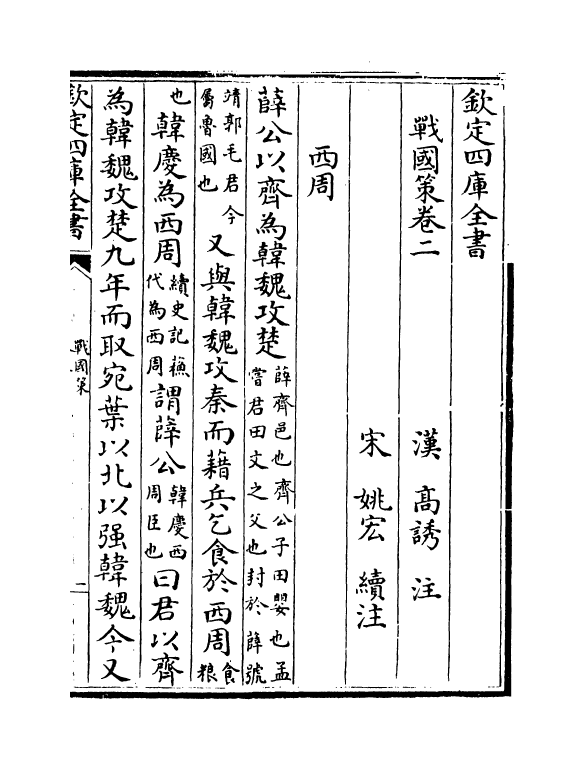 欽定四庫全書
戰國策卷二　漢　髙誘　注
宋　姚宏　續注
西周
薛公以齊為韓魏攻楚薛齊邑也齊公子田嬰也孟嘗君田文之父也封於薛號
靖郭毛君今屬魯國也又與韓魏攻秦而藉兵乞食於西周食粮
也韓慶為西周續史記蘓代為西周謂薛公韓慶西周臣也曰君以齊
為韓魏攻楚九年而取宛葉以北以强韓魏今又
欽定四庫全書
戰國策
二